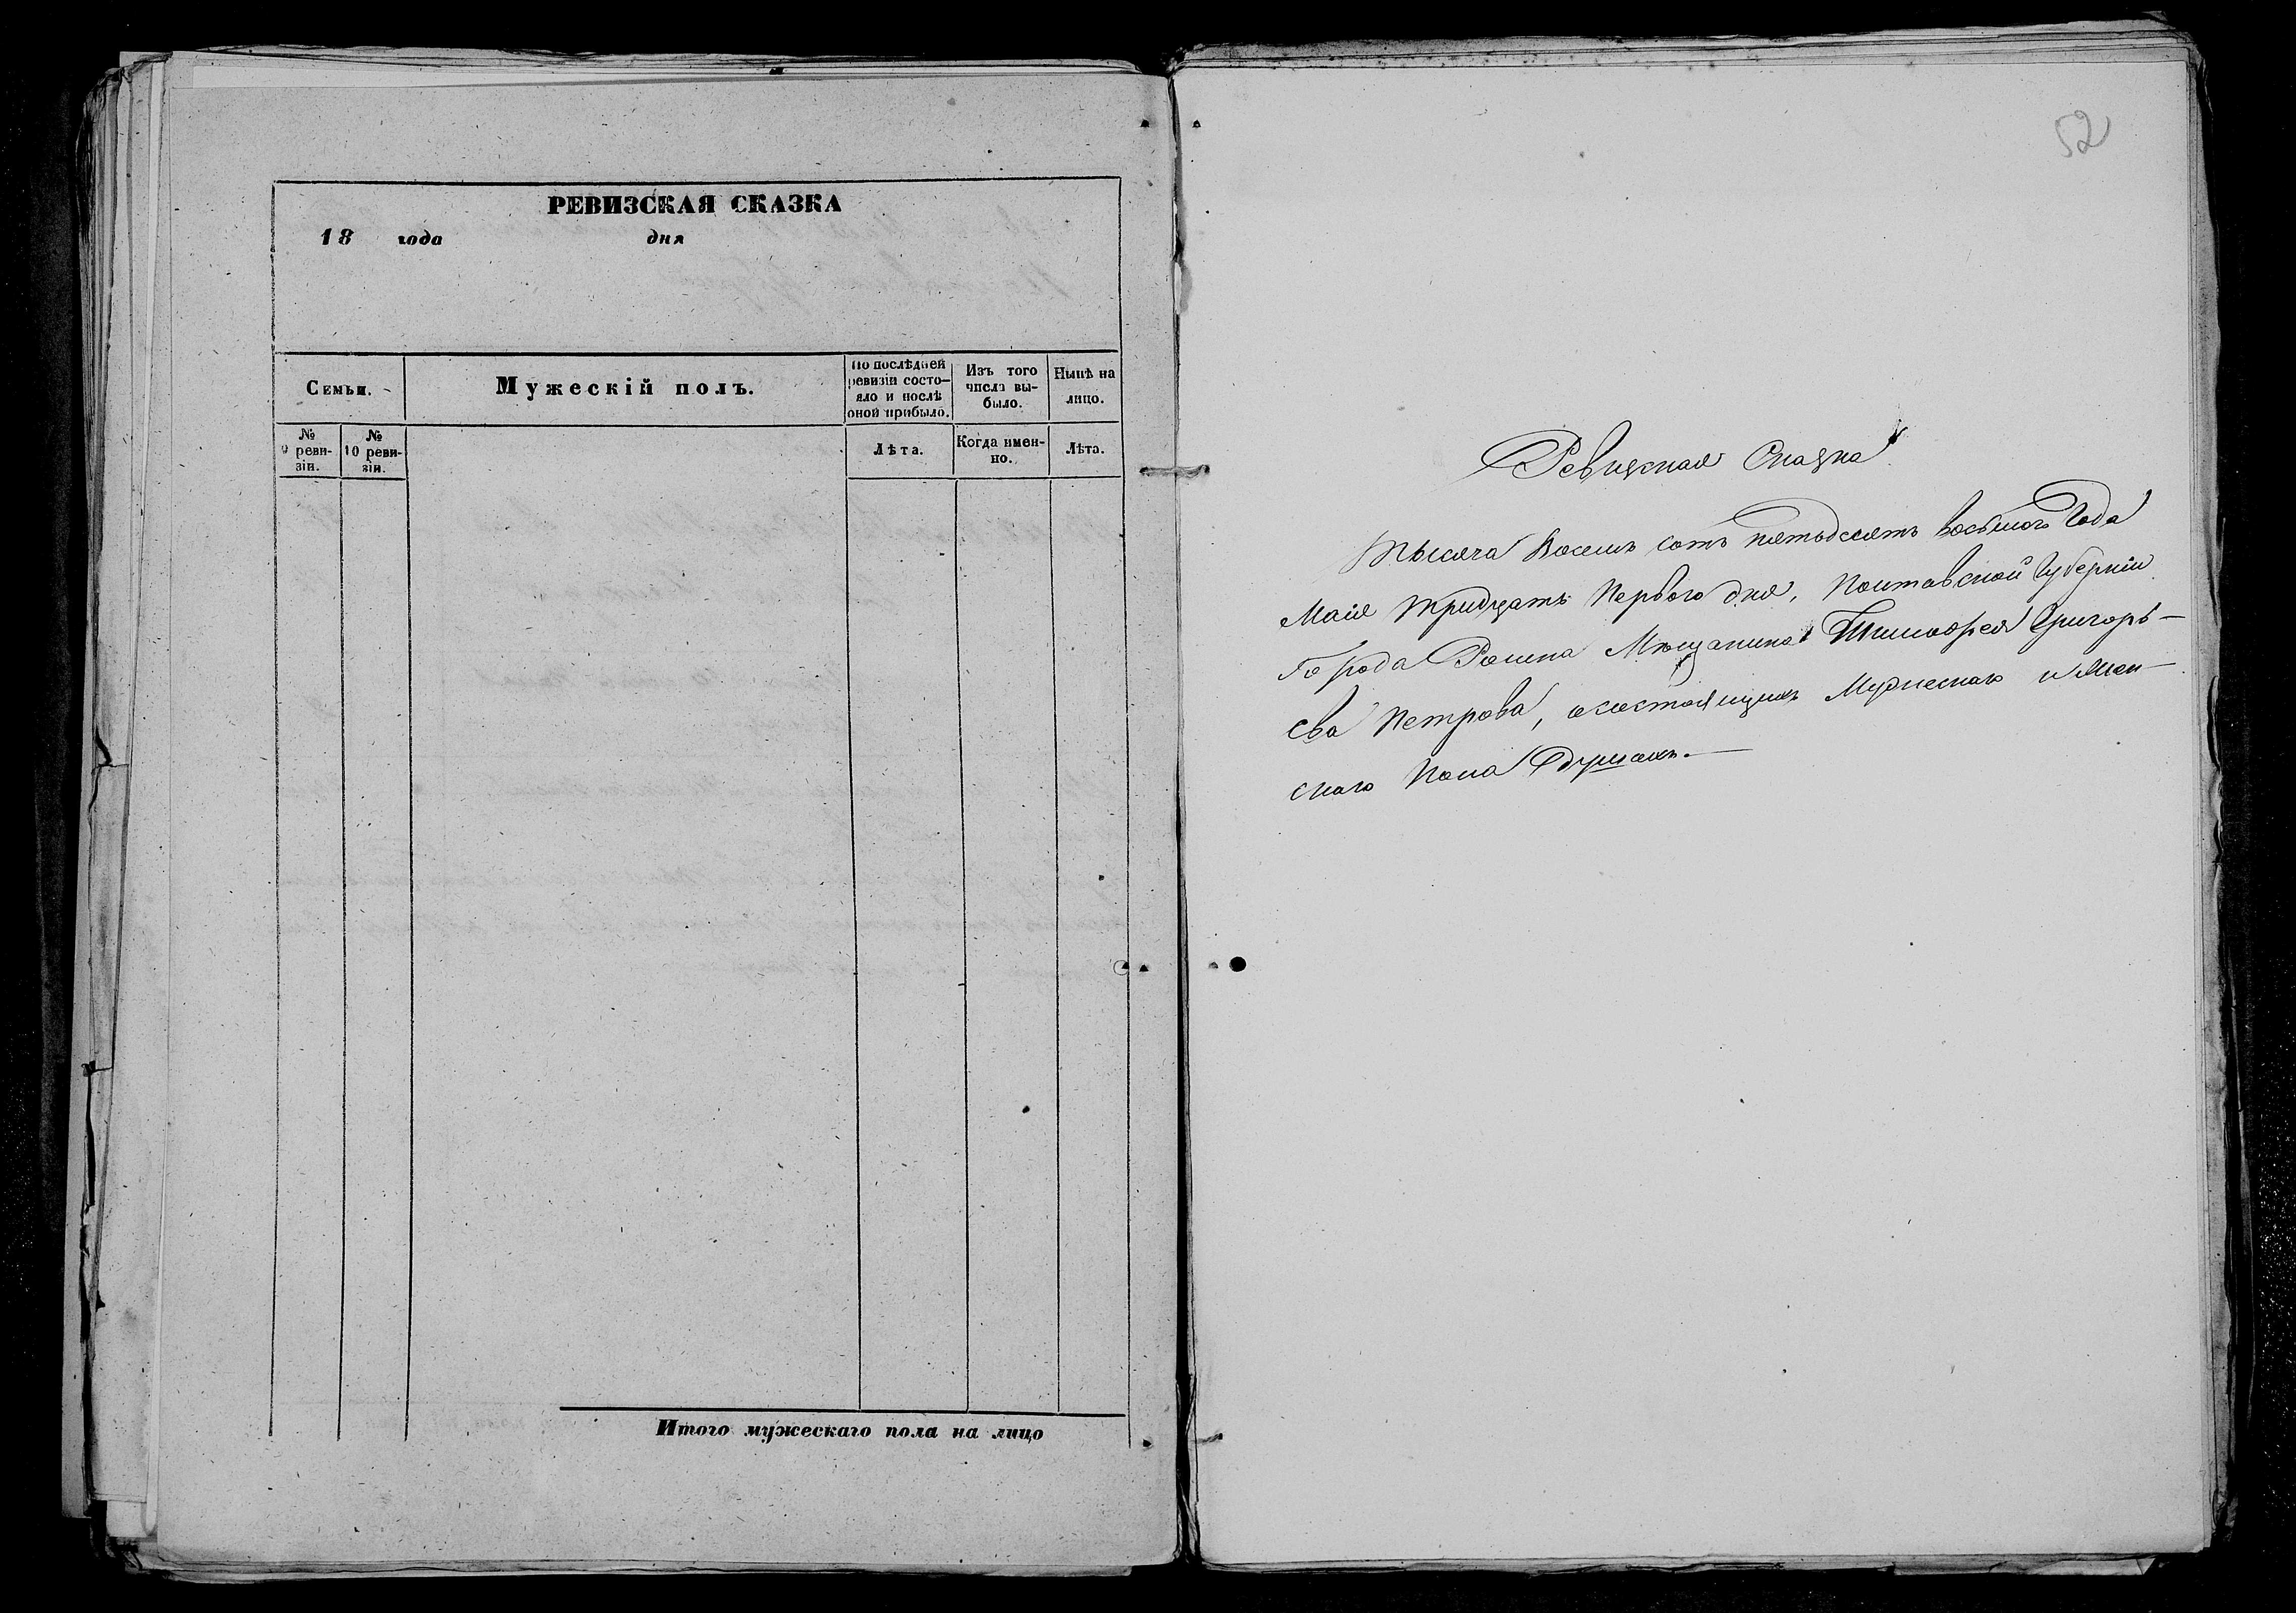 РЕВИЗСКАЯ СКАЗКА
18 года дня
Семьи.
Мужескій полъ.
По послѣдней ревизіи состояло и послѣ оной прибыло.
Изъ того числа выбыло.
Нынѣ на лицо.
№ 9 ревизіи.
№ 10 ревизіи.
Лѣта.
Когда именно.
Лѣта.
Итого мужескаго пола на лицо
52
Ревизская Сказка
Тысяча Восемь сотъ пятьдесятъ восьмого Года
Маія тридцать Первого дня, Полтавской Губерніи
Города Ромна Мѣщанина Тимофея Григорь-
ева Петрова, о состоящихъ Мужеская и Жен-
скаго Пола Душахъ.